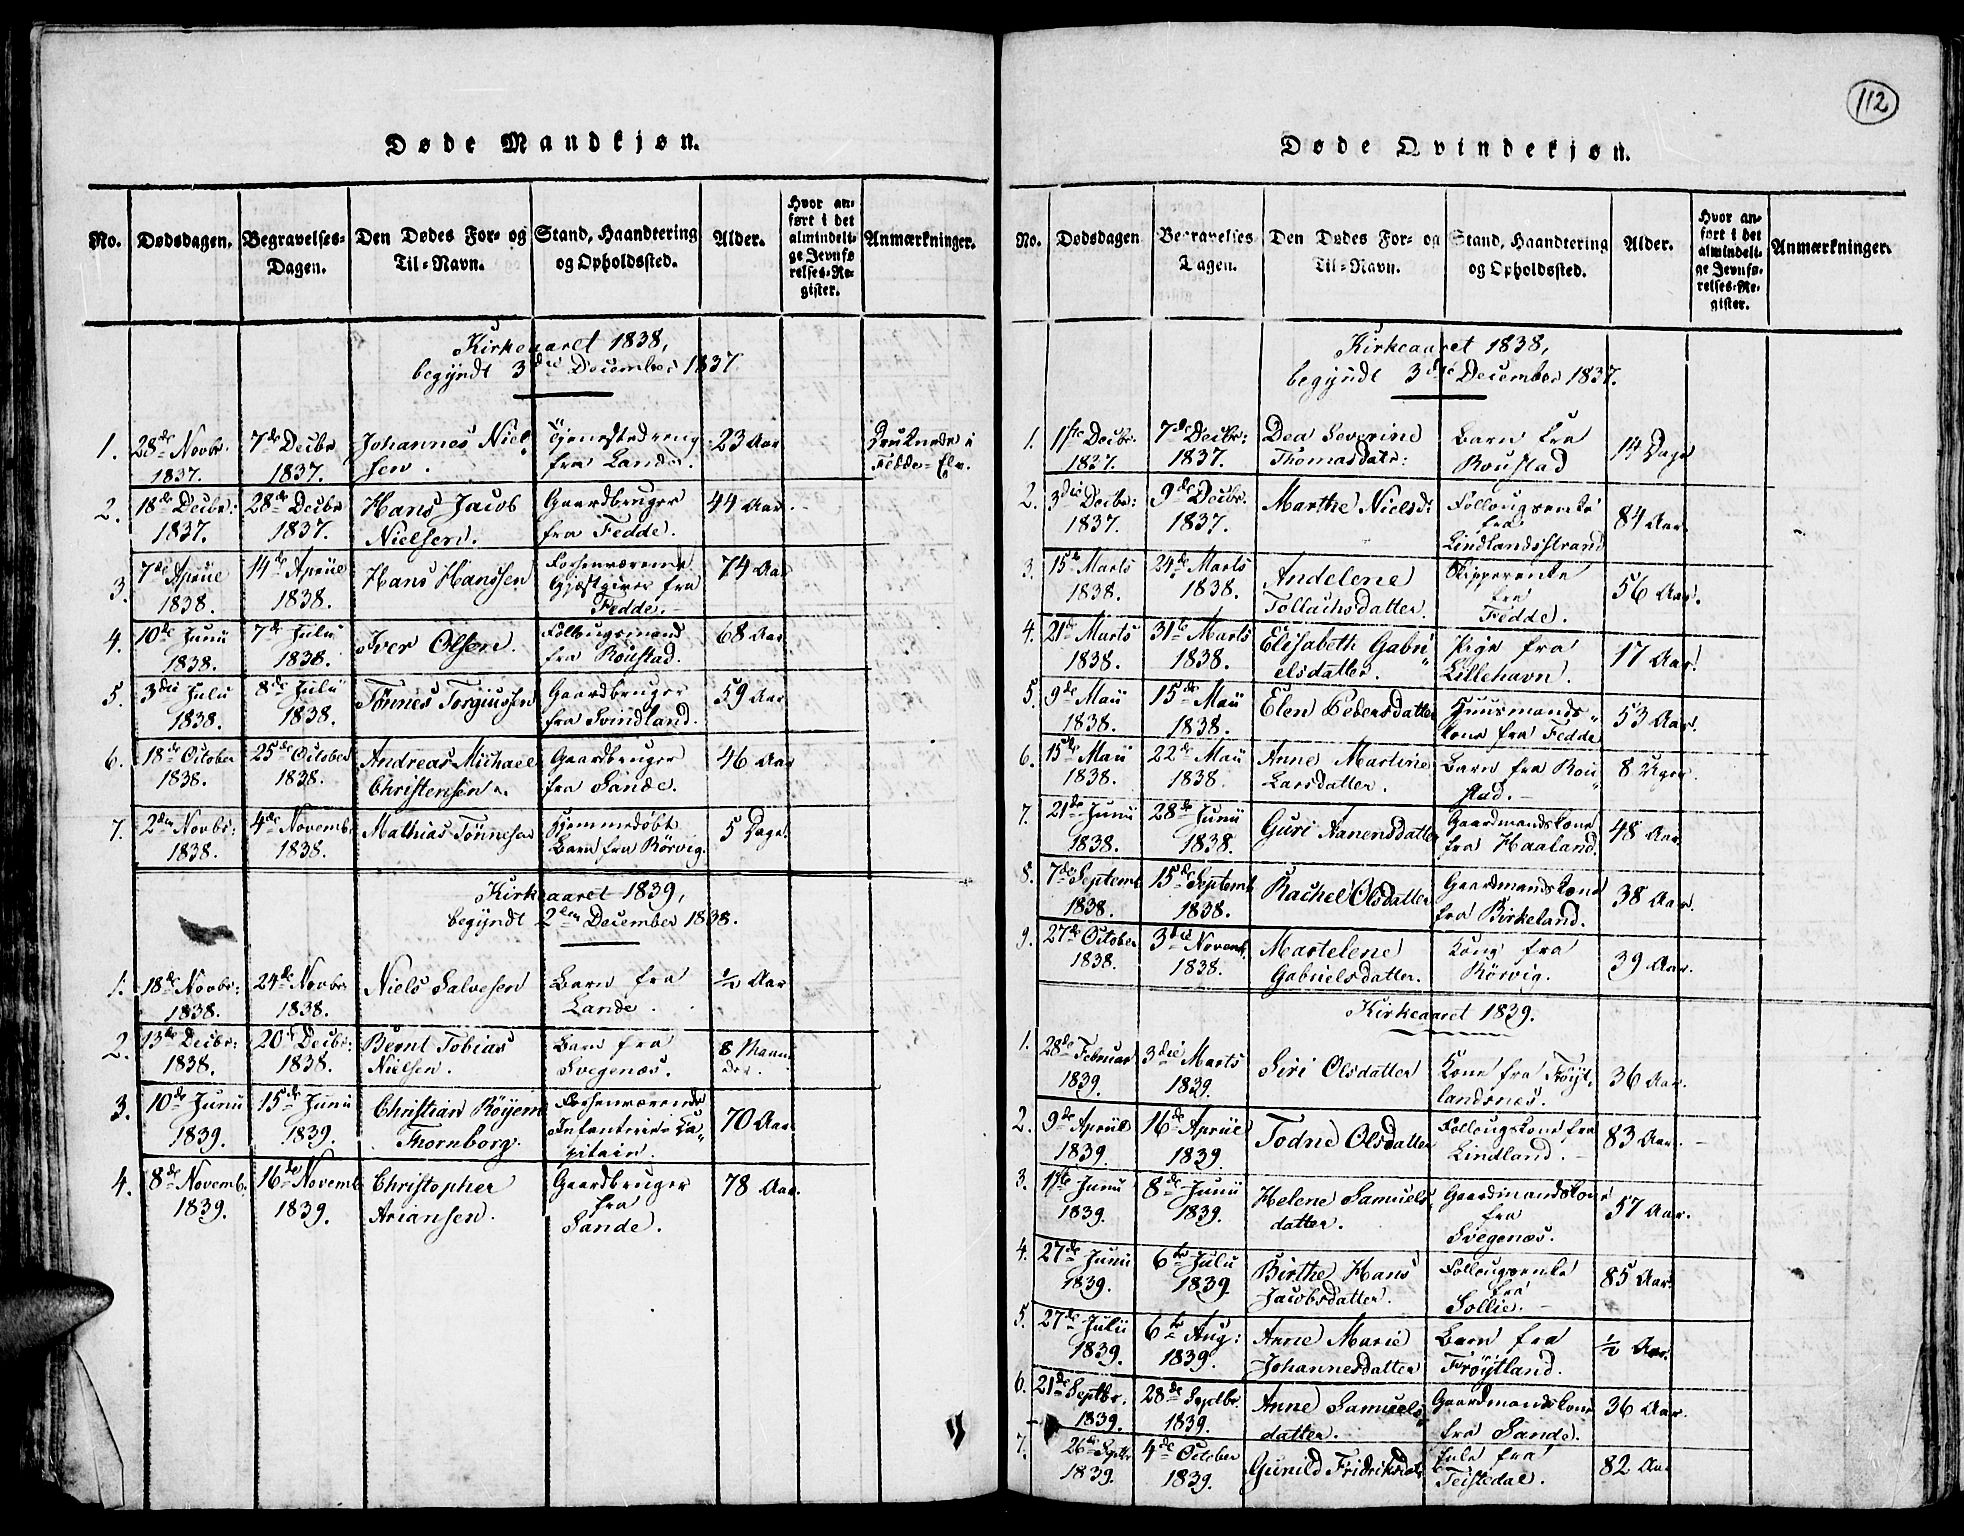 112
Døde Mandkjøn.
No.
Dødsdagen.
Begravelses-
Dagen.
Den Dødes For- og
Til-Navn.
Stand, Haandtering
og Opholdssted.
Alder.
Hvor an-
ført i det
almindeli-
ge Jevnfø-
relses-Re-
gister.
Anmærkninger.
Kirkeaaret 1838,
begyndt 3die December 1837
1. 28de Novbr. 7de Decbr Johannes Niel- Tjenestedreng 23 Aar Druknede i
1837. 1837. sen. fra Lande. Fedde-Elv.
2. 18de Decbr: 28de Decbr Hans Jacob Gaardbruger 44 Aar.
1837. 1837. Nielsen. fra Fedde.
3. 7de Aprill 14de Aprill Hans Hanssen Forhenværende 74 Aar
1838. 1838. Gjæstgiver fra
Fedde.
4. 10de Junii 7de Julii Iver Olsen. Follougsmand 68 Aar
1838. 1838. fra Roustad.
5. 3die Julii 8de Julii Tønnes Torgiussen Gaardbruger 59 Aar
1838. 1838. fra Svindland.
6. 18de October 25de October Andreas Michael Gaardbruger 46 Aar
1838. 1838. Christensen. fra Sande.
7. 2den Novbr: 4de Novemb. Mathias Tønnesen Hjemmedøbt 5 Dage.
1838. 1838. Barn fra Rørvig.
Kirkeaaret 1839,
begyndt 2den December 1838.
1. 18de Novbr: 24de Novbr Niels Salvesen Barn fra 1/2 Aar
1838. 1838. Lande.
2. 13de Decbr: 20de Decbr: Bernt Tobias Barn fra 8 Maane-
1838. 1838. Nielsen. Svegenæs. der.
3. 10de Junii 15de Junii Christian Röyem Forhenværende 70 Aar
1839. 1839. Thornborg. Infanterie-Ca-
pitain.
4. 8de Novemb. 16de Novemb Christopher Gaardbruger 78 Aar.
1839. 1839. Ariansen. fra
Sande.
Døde Qvindekjøn.
No.
Dødsdagen
Begravelses-
Dagen.
Den Dødes For- og
Til-Navn.
Stand, Haandtering
og Opholdssted.
Alder.
Hvor an-
ført i det
almindeli-
ge Jevnfø-
relses-Re-
gister.
Anmærkninger.
Kirkeaaret 1838,
begyndt 3die December 1837.
1. 1ste Decbr. 7de Decbr: Dea Severine Barn fra 14 Dage
1837. 1837. Thomasdatr: Roustad
2. 3die Decbr: 9de Decbr. Marthe Nielsd: Follougsenke 84 Aar
1837. 1837. fra
Lindlandsstrand
3. 15de Marts 24de Marts Andelene Skipperenke 56 Aar.
1838. 1838. Tollachsdatter fra
Fedde.
4. 21de Marts 31te Marts Elisabeth Gabri- Pige fra 17 Aar.
1838. 1838. elsdatter. Lillehavn.
5. 9de Maii 15de Maii Elen Pedersdatter Huusmands- 53 Aar.
1838. 1838. kone fra Fedde
6. 15de Maii 22de Maii Anne Martine Barn fra Rou- 8 Uger.
1838. 1838. Larsdatter. stad.
7. 21de Junii 28de Junii Guri Aanensdatter Gaardmandskone 48 Aar.
1838. 1838. fra Haaland.
8. 7de Septemb 15de Septemb Rachel Olsdatter Gaardmandskone 38 Aar.
1838. 1838. fra Birkeland.
9. 27de October 3die Novemb. Martelene Kone fra 39 Aar.
1838. 1838. Gabrielsdatter. Rörvig.
Kirkeaaret 1839.
1. 28de Februar 3die Marts Siri Olsdatter Kone fra Fröyt- 36 Aar.
1839. 1839. landsnæs.
2. 9de Aprill 16de Aprill Todne Olsdatter Follougskone fra 83 Aar.
1839. 1839. Lindland.
3. 1ste Junii 8de Junii Helene Samuels- Gaardmandskone 57 Aar.
1839. 1839. datter. fra
Svegenæs.
4. 27de Junii 6te Julii Birthe Hans Follougsenke 85 Aar.
1839. 1839. Jacobsdatter. fra
Sollie.
5. 27de Julii 6te Aug: Anne Marie Barn fra 1/2 Aar.
1839. 1839. Johannesdatter Fröytland.
6. 21de Septbr. 28de Septbr. Anne Samuels- Gaardmandskone 36 Aar.
1839. 1839. datter. fra Sande.
7. 26de Septbr 4de October Gunild Fridriksdatr fra 82 Aar
1839. 1839. Teistedal.